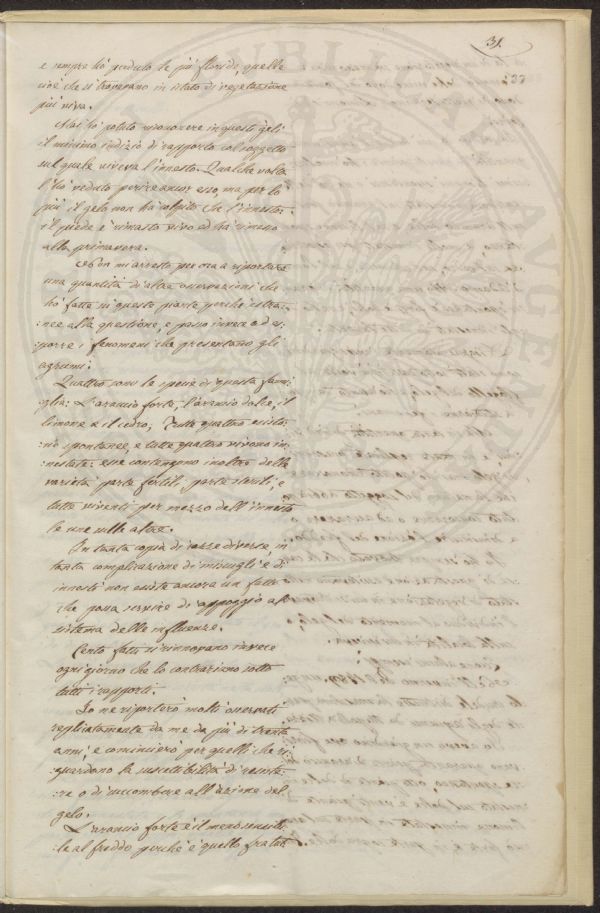 31.
37
e sempre ho veduto le più floride, quelle
cioè che si trovavano in istato di vegetazione
più viva.
Mai ho potuto riconoscere in questi geli
il minimo indizio di rapporto col soggetto
sul quale viveva l'innesto. Qualche volta
l'ho veduto perire ancor esso, ma per lo
più il gelo non ha colpito che l'innesto,
il piede è rimasto vivo ed ha rimesso
alla primavera.
Non mi arresto per ora a riportare
una quantità di altre osservazioni che
ho fatte su queste piante perché estra-
:nee alla questione, e passo invece ad e-
:sporre i fenomeni che presentano gli
agrumi.
Quattro sono le specie di questa fami-
:glia: L'arancio forte, l'arancio dolce, il
limone e il cedro; Tutte quattro esisto-
:no spontanee, e tutte quattro vivono in-
:nestate: esse contengono inoltre delle
varietà parte fertili, parte sterili, e
tutte viventi per mezzo dell'innesto
le une sulle altre.
In tanta copia di razze diverse, in
tanta complicazione di miscugli e di
innesti non esiste ancora un fatto
che possa servire di appoggio al
sistema delle influenze.
Cento fatti si rinnovano invece
ogni giorno che lo contrariano sotto
tutti i rapporti.
Io ne riporterò molti osservati
replicatamente da me da più di trenta
anni, e comincierò per quelli che ri-
:guardono la suscettibilità di resiste-
:re o di soccombere all'azione del
gelo.
L'arancio forte è il meno sensibi-
:le al freddo perché è quello fratut-